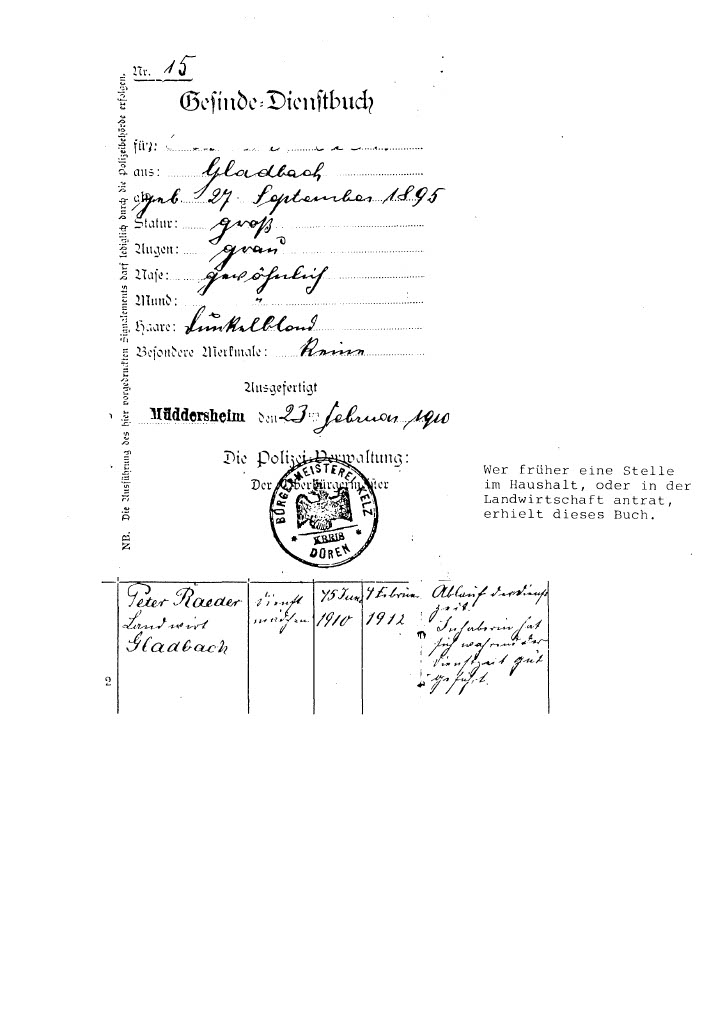 Nr. 15
Gesinde-Dienstbuch
für:
aus: Gladbach
geb. 27. September 1895
Statur: groß
Augen: grau
Nase: gewöhnlich
Mund: "
Haare: dunkelblond
Besondere Merkmale: Keine
Ausgefertigt
Müddersheim den 23 Februar 1910
Die Polizei-Verwaltung:
Der Oberbürgermeister
BÜRGERMEISTEREI KELZ
KREIS
DÜREN
NB. Die Ausführung des hier vorgedruckten Signalements darf lediglich durch die Polizeibehörde erfolgen.
Wer früher eine Stelle
im Haushalt, oder in der
Landwirtschaft antrat,
erhielt dieses Buch.
2
Peter Raeder
Landwirt
Gladbach
Dienst
mädchen
15 Juni
1910
1 Februar
1912
Ablauf der Dienst
zeit.
Inhaberin hat
sich während der
Dienstzeit gut
geführt.